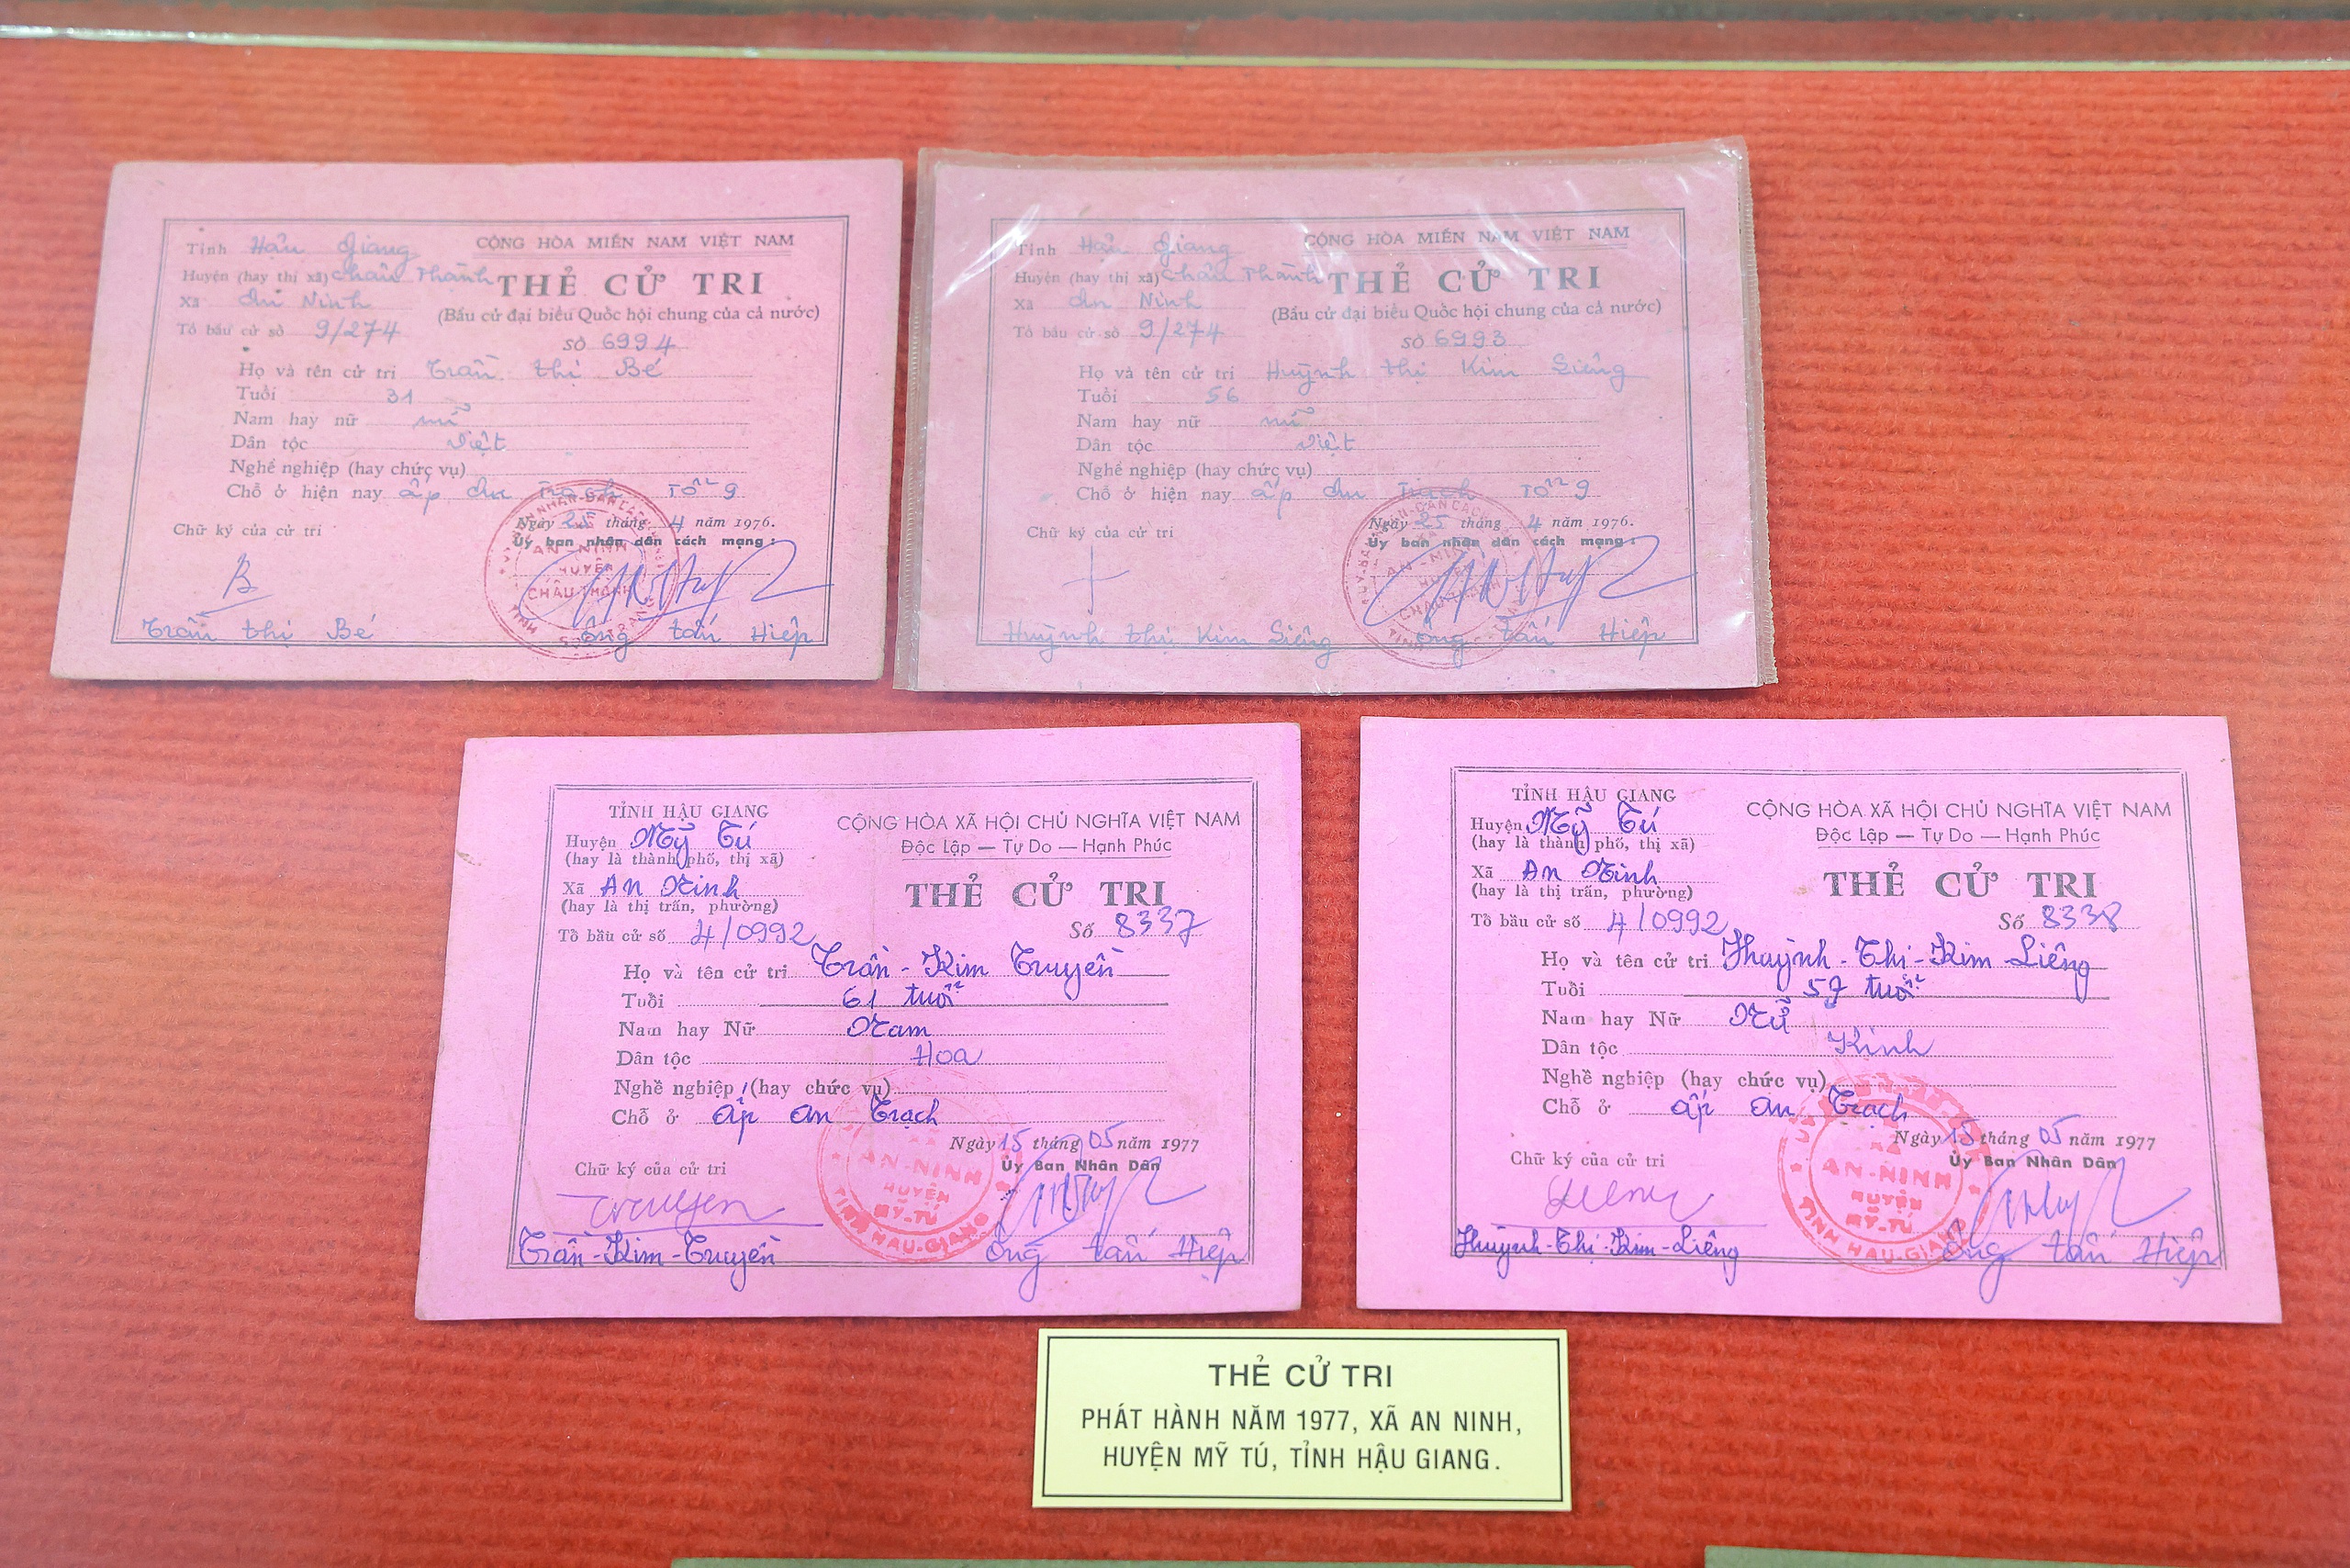 Tỉnh Hậu Giang
CỘNG HÒA MIỀN NAM VIỆT NAM
Huyện (hay thị xã) Châu Thành
THẺ CỬ TRI
Xã An Ninh
(Bầu cử đại biểu Quốc hội chung của cả nước)
Tổ bầu cử số 9/274
số 6994
Họ và tên cử tri Trần thị Bé
Tuổi 31
Nam hay nữ nữ
Dân tộc việt
Nghề nghiệp (hay chức vụ)
Chỗ ở hiện nay ấp An Trạch Tổ 9
Ngày 25 tháng 4 năm 1976.
Chữ ký của cử tri
Ủy ban nhân dân cách mạng:
AN-NINH
HUYỆN
CHÂU THÀNH
B
Trần thị Bé
ông tấn Hiệp
Tỉnh Hậu Giang
CỘNG HÒA MIỀN NAM VIỆT NAM
Huyện (hay thị xã) Châu Thành
THẺ CỬ TRI
Xã An Ninh
(Bầu cử đại biểu Quốc hội chung của cả nước)
Tổ bầu cử số 9/274
số 6993
Họ và tên cử tri Huỳnh thị Kim Liêng
Tuổi 56
Nam hay nữ nữ
Dân tộc việt
Nghề nghiệp (hay chức vụ)
Chỗ ở hiện nay ấp An Trạch Tổ 9
Ngày 25 tháng 4 năm 1976.
Chữ ký của cử tri
Ủy ban nhân dân cách mạng:
AN-NINH
HUYỆN
CHÂU THÀNH
Huỳnh thị Kim Liêng
ông tấn Hiệp
TỈNH HẬU GIANG
CỘNG HÒA XÃ HỘI CHỦ NGHĨA VIỆT NAM
Huyện Mỹ Tú
Độc Lập — Tự Do — Hạnh Phúc
(hay là thành phố, thị xã)
Xã An Ninh
THẺ CỬ TRI
(hay là thị trấn, phường)
Tổ bầu cử số 4/0992
Số 8337
Họ và tên cử tri Trần-Kim Truyền
Tuổi 61 tuổi
Nam hay Nữ Nam
Dân tộc Hoa
Nghề nghiệp (hay chức vụ)
Chỗ ở ấp An Trạch
Ngày 15 tháng 05 năm 1977
Chữ ký của cử tri
Ủy Ban Nhân Dân
XÃ
AN-NINH
HUYỆN
MỸ-TÚ
TỈNH HẬU-GIANG
Truyen
Trần-Kim-Truyền
ông tấn Hiệp
TỈNH HẬU GIANG
CỘNG HÒA XÃ HỘI CHỦ NGHĨA VIỆT NAM
Huyện Mỹ Tú
Độc Lập — Tự Do — Hạnh Phúc
(hay là thành phố, thị xã)
Xã An Ninh
THẺ CỬ TRI
(hay là thị trấn, phường)
Tổ bầu cử số 4/0992
Số 8338
Họ và tên cử tri Huỳnh-Thị-Kim-Liêng
Tuổi 57 tuổi
Nam hay Nữ Nữ
Dân tộc Kinh
Nghề nghiệp (hay chức vụ)
Chỗ ở ấp An Trạch
Ngày 15 tháng 05 năm 1977
Chữ ký của cử tri
Ủy Ban Nhân Dân
XÃ
AN-NINH
HUYỆN
MỸ-TÚ
TỈNH HẬU-GIANG
Huỳnh-Thị-Kim-Liêng
ông tấn Hiệp
THẺ CỬ TRI
PHÁT HÀNH NĂM 1977, XÃ AN NINH,
HUYỆN MỸ TÚ, TỈNH HẬU GIANG.